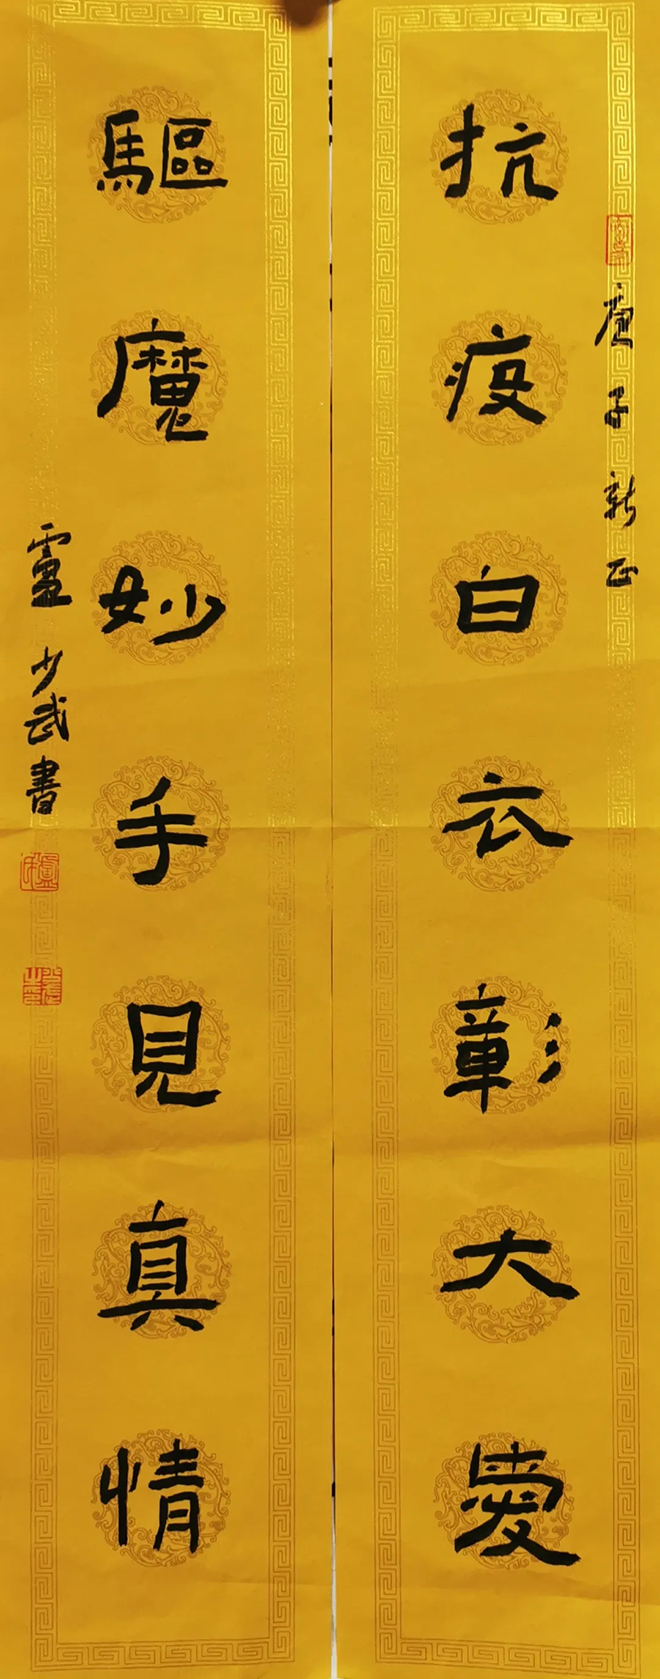 抗疫白衣彰大愛
庚子新正
驅魔妙手見真情
少武書